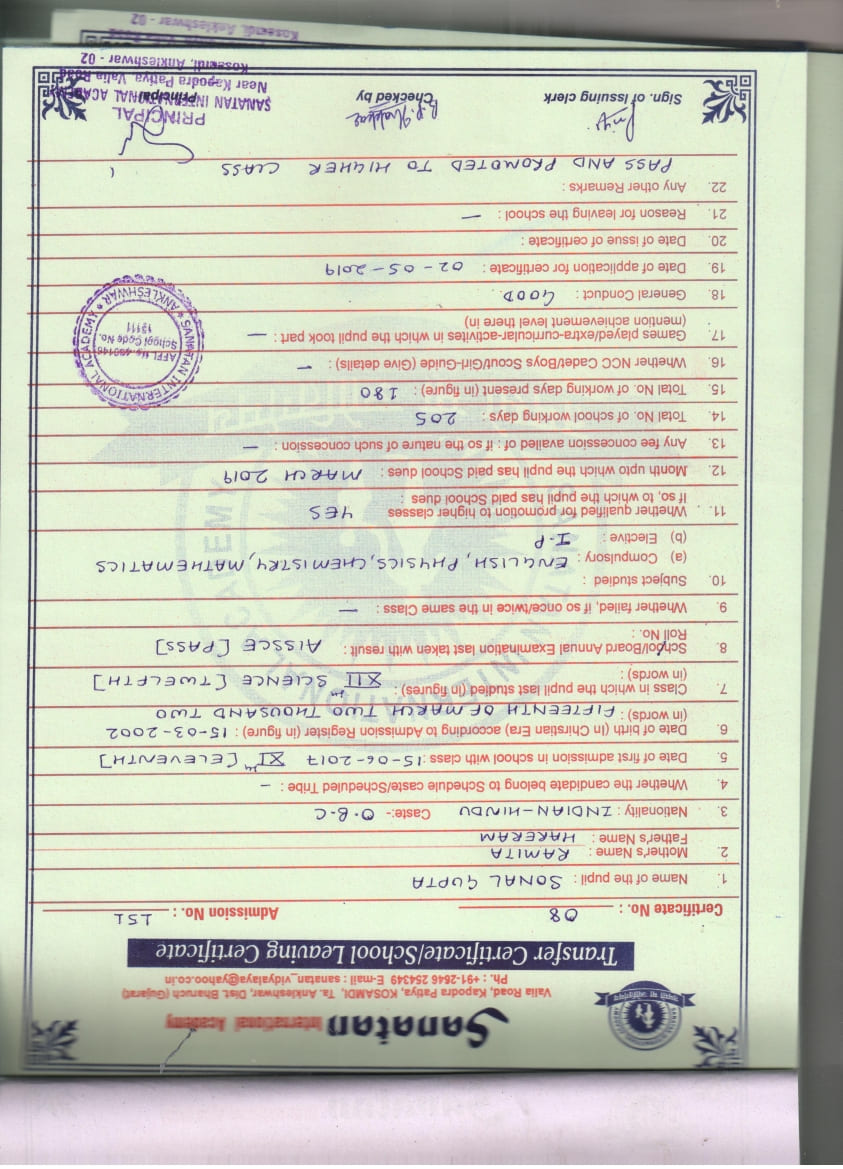 Sanatan International Academy
Valia Road, Kapodra Patiya, KOSAMDI, Ta. Ankleshwar, Dist. Bharuch (Gujarat)
Ph. : +91-2646 254349 E-mail : sanatan_vidyalaya@yahoo.co.in
Transfer Certificate/School Leaving Certificate
Certificate No. : 08 Admission No. : 151
1. Name of the pupil : SONAL GUPTA
2. Mother's Name : RAMITA
Father's Name : HARERAM
3. Nationality : INDIAN-HINDU Caste:- O.B.C
4. Whether the candidate belong to Schedule caste/Scheduled Tribe : –
5. Date of first admission in school with class : 15-06-2017 XIth [ELEVENTH]
6. Date of birth (In Chirstian Era) according to Admission Register (in figure) : 15-03-2002
(in words) : FIFTEENTH OF MARCH TWO THOUSAND TWO
7. Class in which the pupil last studied (in figures) : XIIth SCIENCE [TWELFTH]
(in words) :
8. School/Board Annual Examination last taken with result : AISSCE [PASS]
Roll No. :
9. Whether failed, if so once/twice in the same Class : —
10. Subject studied :
(a) Compulsory : ENGLISH, PHYSICS, CHEMISTRY, MATHEMATICS
(b) Elective : I.P
11. Whether qualified for promotion to higher classes YES
If so, to which the pupil has paid School dues :
12. Month upto which the pupil has paid School dues : MARCH 2019
13. Any fee concession availed of : if so the nature of such concession : —
14. Total No. of school working days : 205
15. Total No. of working days present (in figure) : 180
16. Whether NCC Cadet/Boys Scout/Girl-Guide (Give details) : –
17. Games played/extra-curricular-activites in which the pupil took part : —
(mention achievement level there in)
18. General Conduct : GOOD.
19. Date of application for certificate : 02-05-2019
20. Date of issue of certificate :
21. Reason for leaving the school : —
22. Any other Remarks :
PASS AND PROMOTED TO HIGHER CLASS
SANATAN INTERNATIONAL ACADEMY
ANKLESHWAR
School Code No.
Sign. of Issuing clerk Checked by Principal
PRINCIPAL
SANATAN INTERNATIONAL ACADEMY
Near Kapodra Patiya, Valia Road
Kosamdi, Ankleshwar - 02
Kosamdi, Ankleshwar - 02